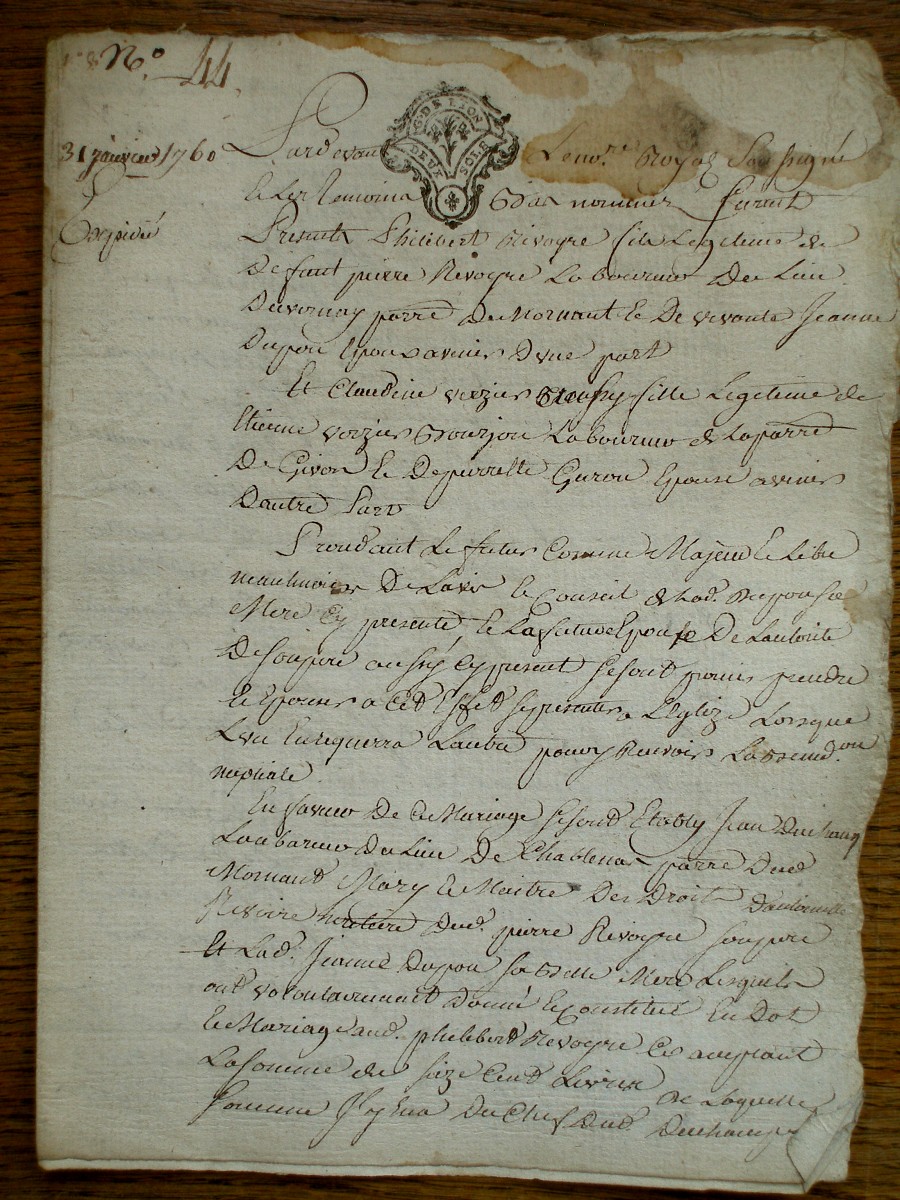 N.o 44
31 janvier 1760
Expedié
G. DE LYON
DEUX SOLS
Pardevant Le no.re Royal Soussigné
et les temoins bas nommés furent
Presents Philibert Revogre fils Legeteme de
Defunt pierre Revogre Laboureur Du Lieu
Duvernay parre de Mornant et De vivante Jeanne
Dupon Epoux avenir D'une part
Et Claudine verzier fille Legeteme de
Etienne verzier Laboureur de Laparre
De Givor et De pierrette Guron Epouse avenir
Dautre Part
Procedant Le futur Comme Majeur et Libre
neanlmoins De Lavis et Conseil de Lad. Dupon sa
Mere Cy presente, et La future Epouse De Lautorité
De son pere aussy Cy present se sont promis prendre
et Epouser a Cet Effed se presenter a L'Eglize Lorsque
L'un En requerra Lautre pour y Recevoir La Bened.on
nuptiale
En faveur De Ce Mariage se sont Etably Jean Duchamp
Laboureur du Lieu De Chablenas parre dud.
Mornand Mary et Maitre Des Droits D'antoinette
Revoire dud. pierre Revogre son pere
Et Lad. Jeanne Dupon sa Belle Mere Lesquels
ont volontairement Donné et Constitué En Dot
et Mariage aud. philibert Revogre Cy aceptant
La somme de Saize Cent Livres De Laquelle
somme Il y En a Du Chef Dud. Duchamp